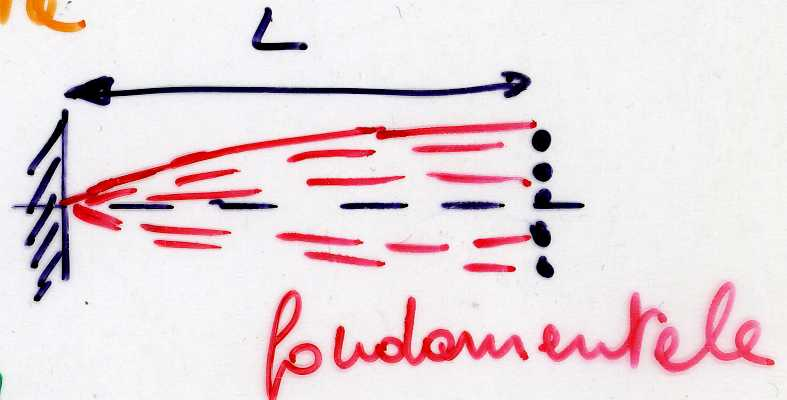 L
fondamentale